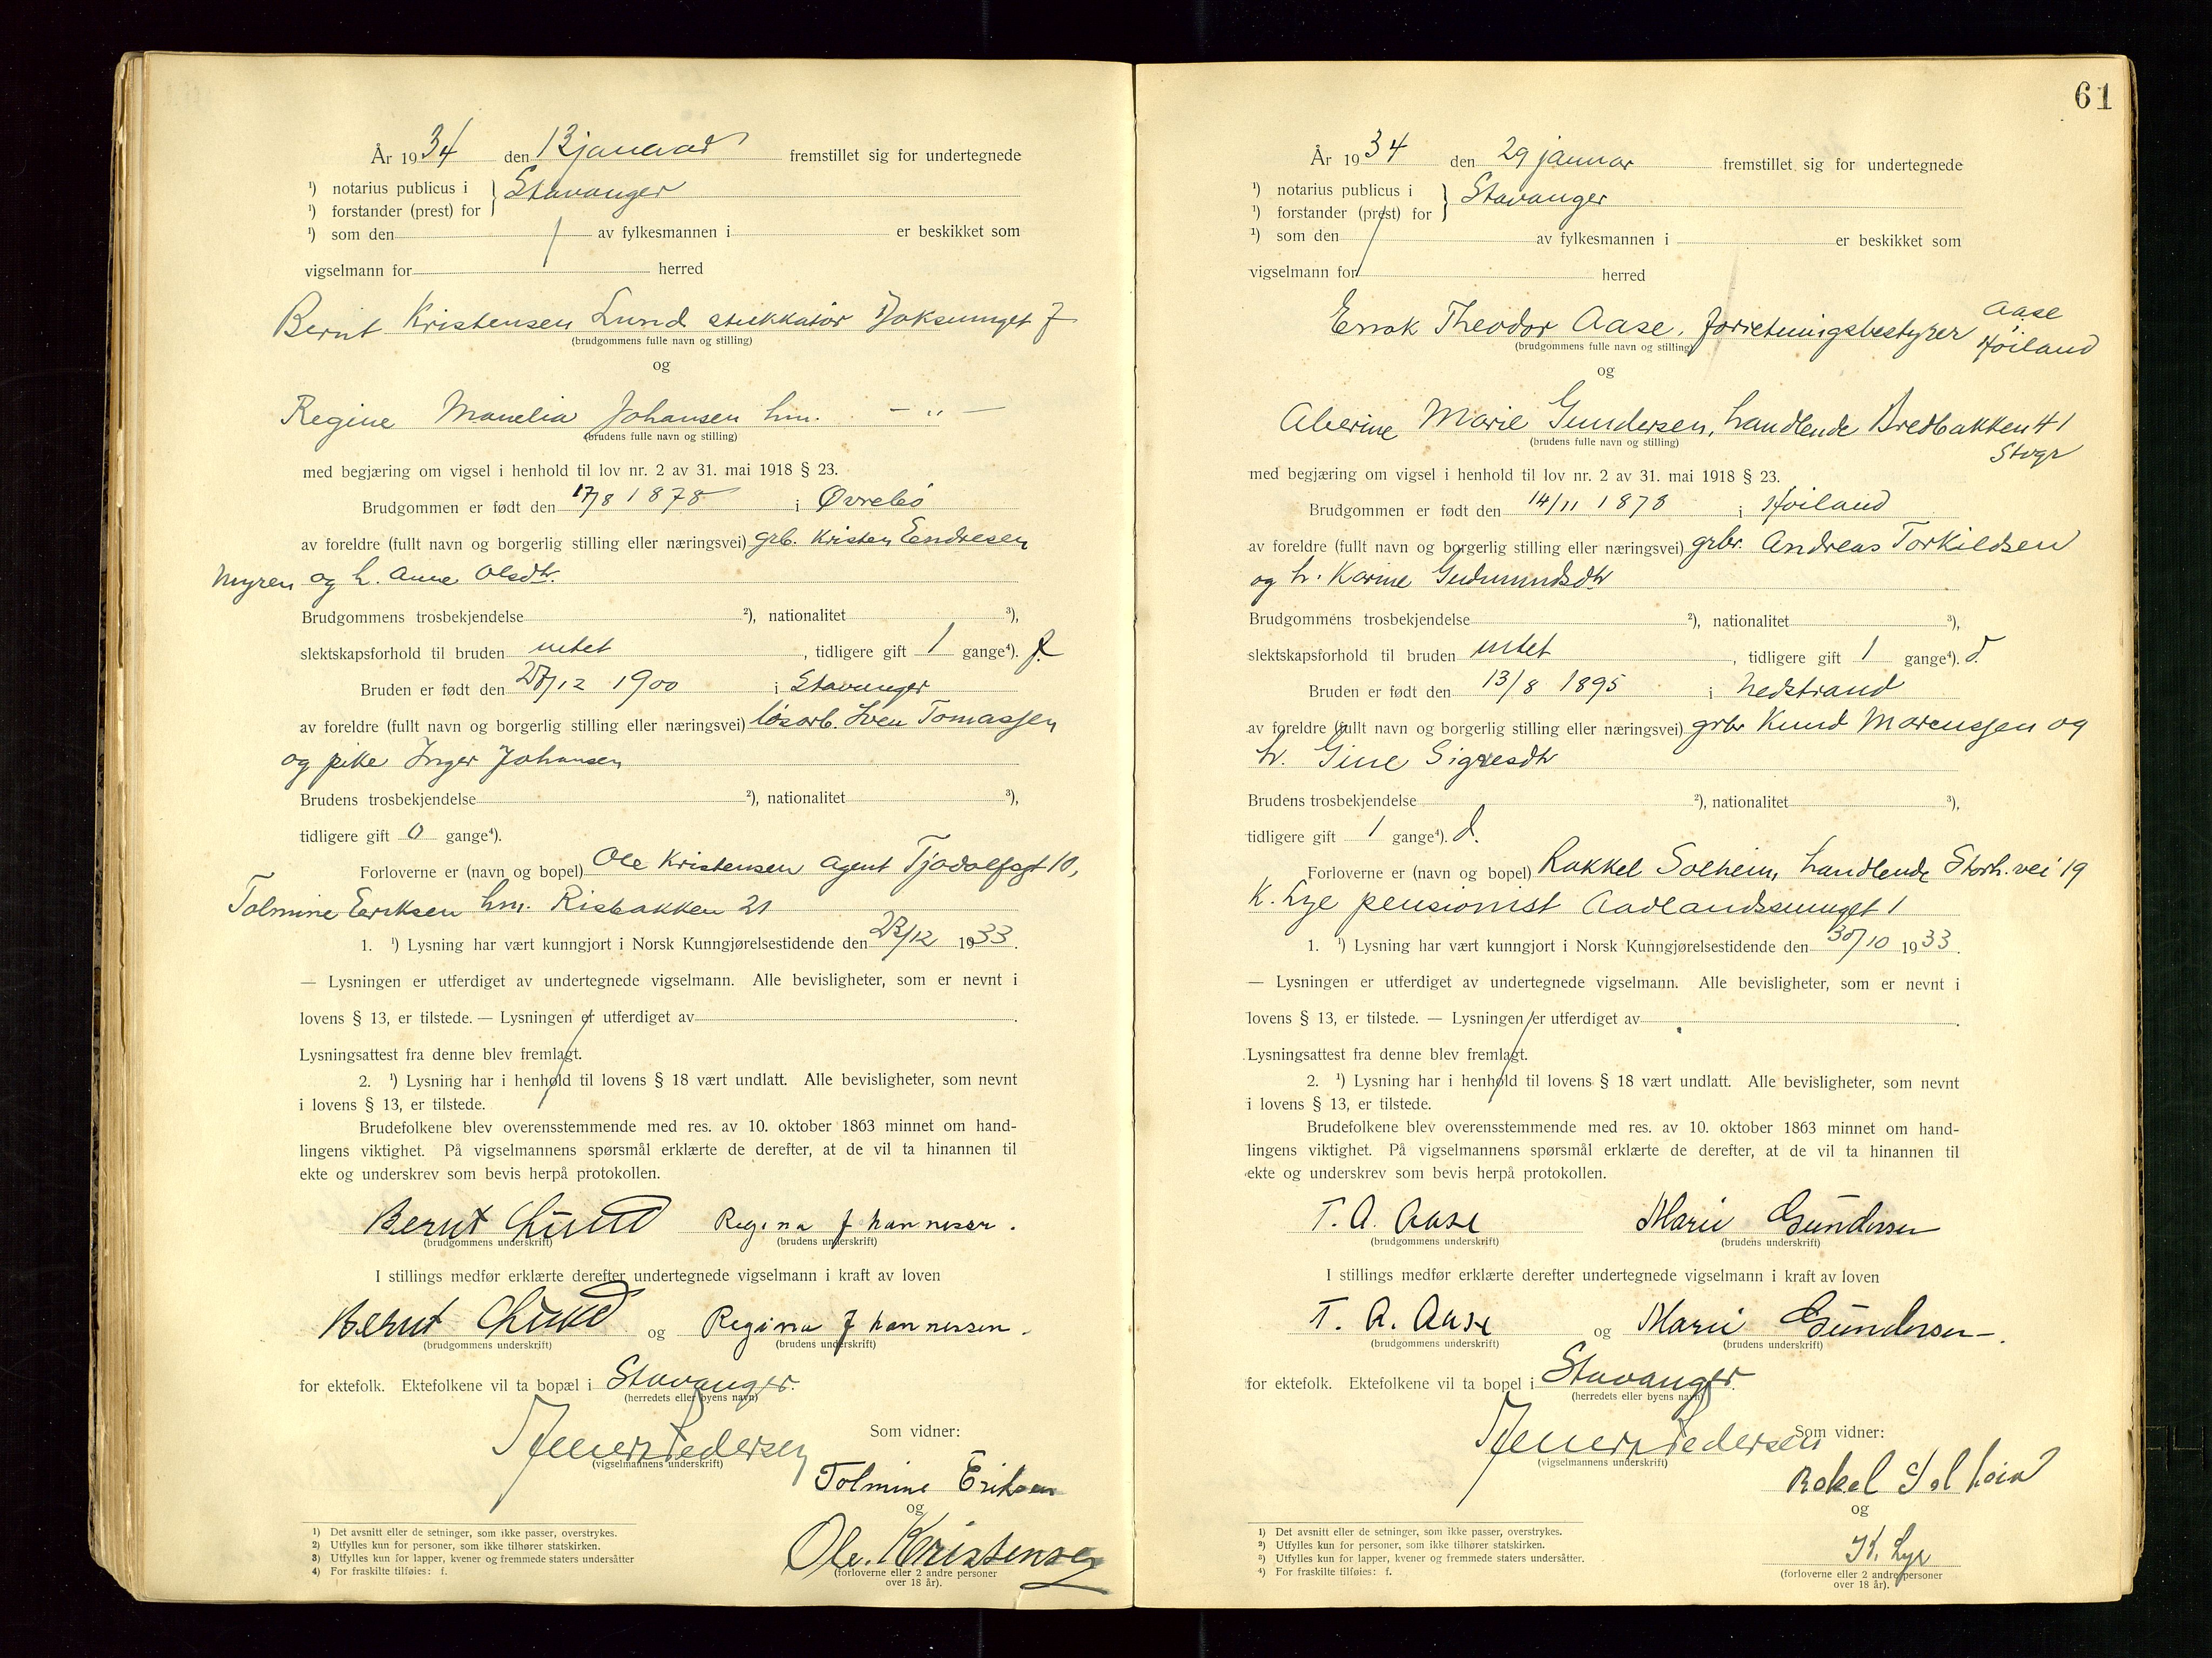 År 1934 den 13 januar fremstillet sig for undertegnede
¹) notarius publicus i } Stavanger
¹) forstander (prest) for
¹) som den av fylkesmannen i er beskikket som
vigselmann for herred
Bernt Kristensen Lund stukkatør smuget 7
(brudgommens fulle navn og stilling)
og
Regine Johansen hm. — „ —
(brudens fulle navn og stilling)
med begjæring om vigsel i henhold til lov nr. 2 av 31. mai 1918 § 23.
Brudgommen er født den 17/8 1878 i Øvrebö
av foreldre (fullt navn og borgerlig stilling eller næringsvei) grb. Kristen Endresen
Myren og h. Ane Olsdtr.
Brudgommens trosbekjendelse ²), nationalitet ³),
slektskapsforhold til bruden intet, tidligere gift 1 gange⁴). f.
Bruden er født den 28/12 1900 i Stavanger
av foreldre (fullt navn og borgerlig stilling eller næringsvei) løsarb. Sven Tomassen
og pike Inger Johansen
Brudens trosbekjendelse ²), nationalitet ³),
tidligere gift 0 gange⁴).
Forloverne er (navn og bopel) Ole Kristensen agent Tjodolfsgt 10,
Tolmine Eriksen hm. Risbakken 21
1. ¹) Lysning har vært kunngjort i Norsk Kunngjørelsestidende den 23/12 1933.
— Lysningen er utferdiget av undertegnede vigselmann. Alle bevisligheter, som er nevnt i
lovens § 13, er tilstede. — Lysningen er utferdiget av .
Lysningsattest fra denne blev fremlagt.
2. ¹) Lysning har i henhold til lovens § 18 vært undlatt. Alle bevisligheter, som nevnt
i lovens § 13, er tilstede.
Brudefolkene blev overensstemmende med res. av 10. oktober 1863 minnet om hand-
lingens viktighet. På vigselmannens spørsmål erklærte de derefter, at de vil ta hinannen til
ekte og underskrev som bevis herpå protokollen.
Bernt Lund Regina Johannesen.
(brudgommens underskrift) (brudens underskrift)
I stillings medfør erklærte derefter undertegnede vigselmann i kraft av loven
Bernt Lund og Regina Johannessen.
(brudgommens underskrift) (brudens underskrift)
for ektefolk. Ektefolkene vil ta bopæl i Stavanger.
(herredets eller byens navn)
Pedersen
(vigselmannens underskrift)
Som vidner:
Tolmine Eriksen
og
Ole. Kristensen
(forloverne eller 2 andre personer
over 18 år).
1) Det avsnitt eller de setninger, som ikke passer, overstrykes.
2) Utfylles kun for personer, som ikke tilhører statskirken.
3) Utfylles kun for lapper, kvener og fremmede staters undersåtter
4) For fraskilte tilføies: f.
61
År 1934 den 29 januar fremstillet sig for undertegnede
¹) notarius publicus i } Stavanger
¹) forstander (prest) for
¹) som den av fylkesmannen i er beskikket som
vigselmann for herred
Theodor Aase, forretningsbestyrer Aase
Höiland
(brudgommens fulle navn og stilling)
og
Alverine Marie Gundersen, handlende Bredbakken 41
Stvgr
(brudens fulle navn og stilling)
med begjæring om vigsel i henhold til lov nr. 2 av 31. mai 1918 § 23.
Brudgommen er født den 14/11 1878 i Höiland
av foreldre (fullt navn og borgerlig stilling eller næringsvei) grbr. Andreas Torkildsen
og h. Karine Gudmundsdtr
Brudgommens trosbekjendelse ²), nationalitet ³),
slektskapsforhold til bruden intet, tidligere gift 1 gange⁴). d.
Bruden er født den 13/8 1895 i Nedstrand
av foreldre (fullt navn og borgerlig stilling eller næringsvei) grbr Knud Marcussen og
h. Gine
Brudens trosbekjendelse ²), nationalitet ³),
tidligere gift 1 gange⁴). d.
Forloverne er (navn og bopel) Rakkel Solheim, handlende Storh. vei 19
K. Lye pensionist Aadlandssmuget 1
1. ¹) Lysning har vært kunngjort i Norsk Kunngjørelsestidende den 30/10 1933.
— Lysningen er utferdiget av undertegnede vigselmann. Alle bevisligheter, som er nevnt i
lovens § 13, er tilstede. — Lysningen er utferdiget av .
Lysningsattest fra denne blev fremlagt.
2. ¹) Lysning har i henhold til lovens § 18 vært undlatt. Alle bevisligheter, som nevnt
i lovens § 13, er tilstede.
Brudefolkene blev overensstemmende med res. av 10. oktober 1863 minnet om hand-
lingens viktighet. På vigselmannens spørsmål erklærte de derefter, at de vil ta hinannen til
ekte og underskrev som bevis herpå protokollen.
T. A. Aase Marie Gundersen
(brudgommens underskrift) (brudens underskrift)
I stillings medfør erklærte derefter undertegnede vigselmann i kraft av loven
T. A. Aase og Marie Gundersen.
(brudgommens underskrift) (brudens underskrift)
for ektefolk. Ektefolkene vil ta bopel i Stavanger.
(herredets eller byens navn)
Pedersen
(vigselmannens underskrift)
Som vidner:
Rakel Solheim
og
K. Lye
(forloverne eller 2 andre personer
over 18 år).
1) Det avsnitt eller de setninger, som ikke passer, overstrykes.
²) Utfylles kun for personer, som ikke tilhører statskirken.
³) Utfylles kun for lapper, kvener og fremmede staters undersåtter.
⁴) For fraskilte tilføies: f.